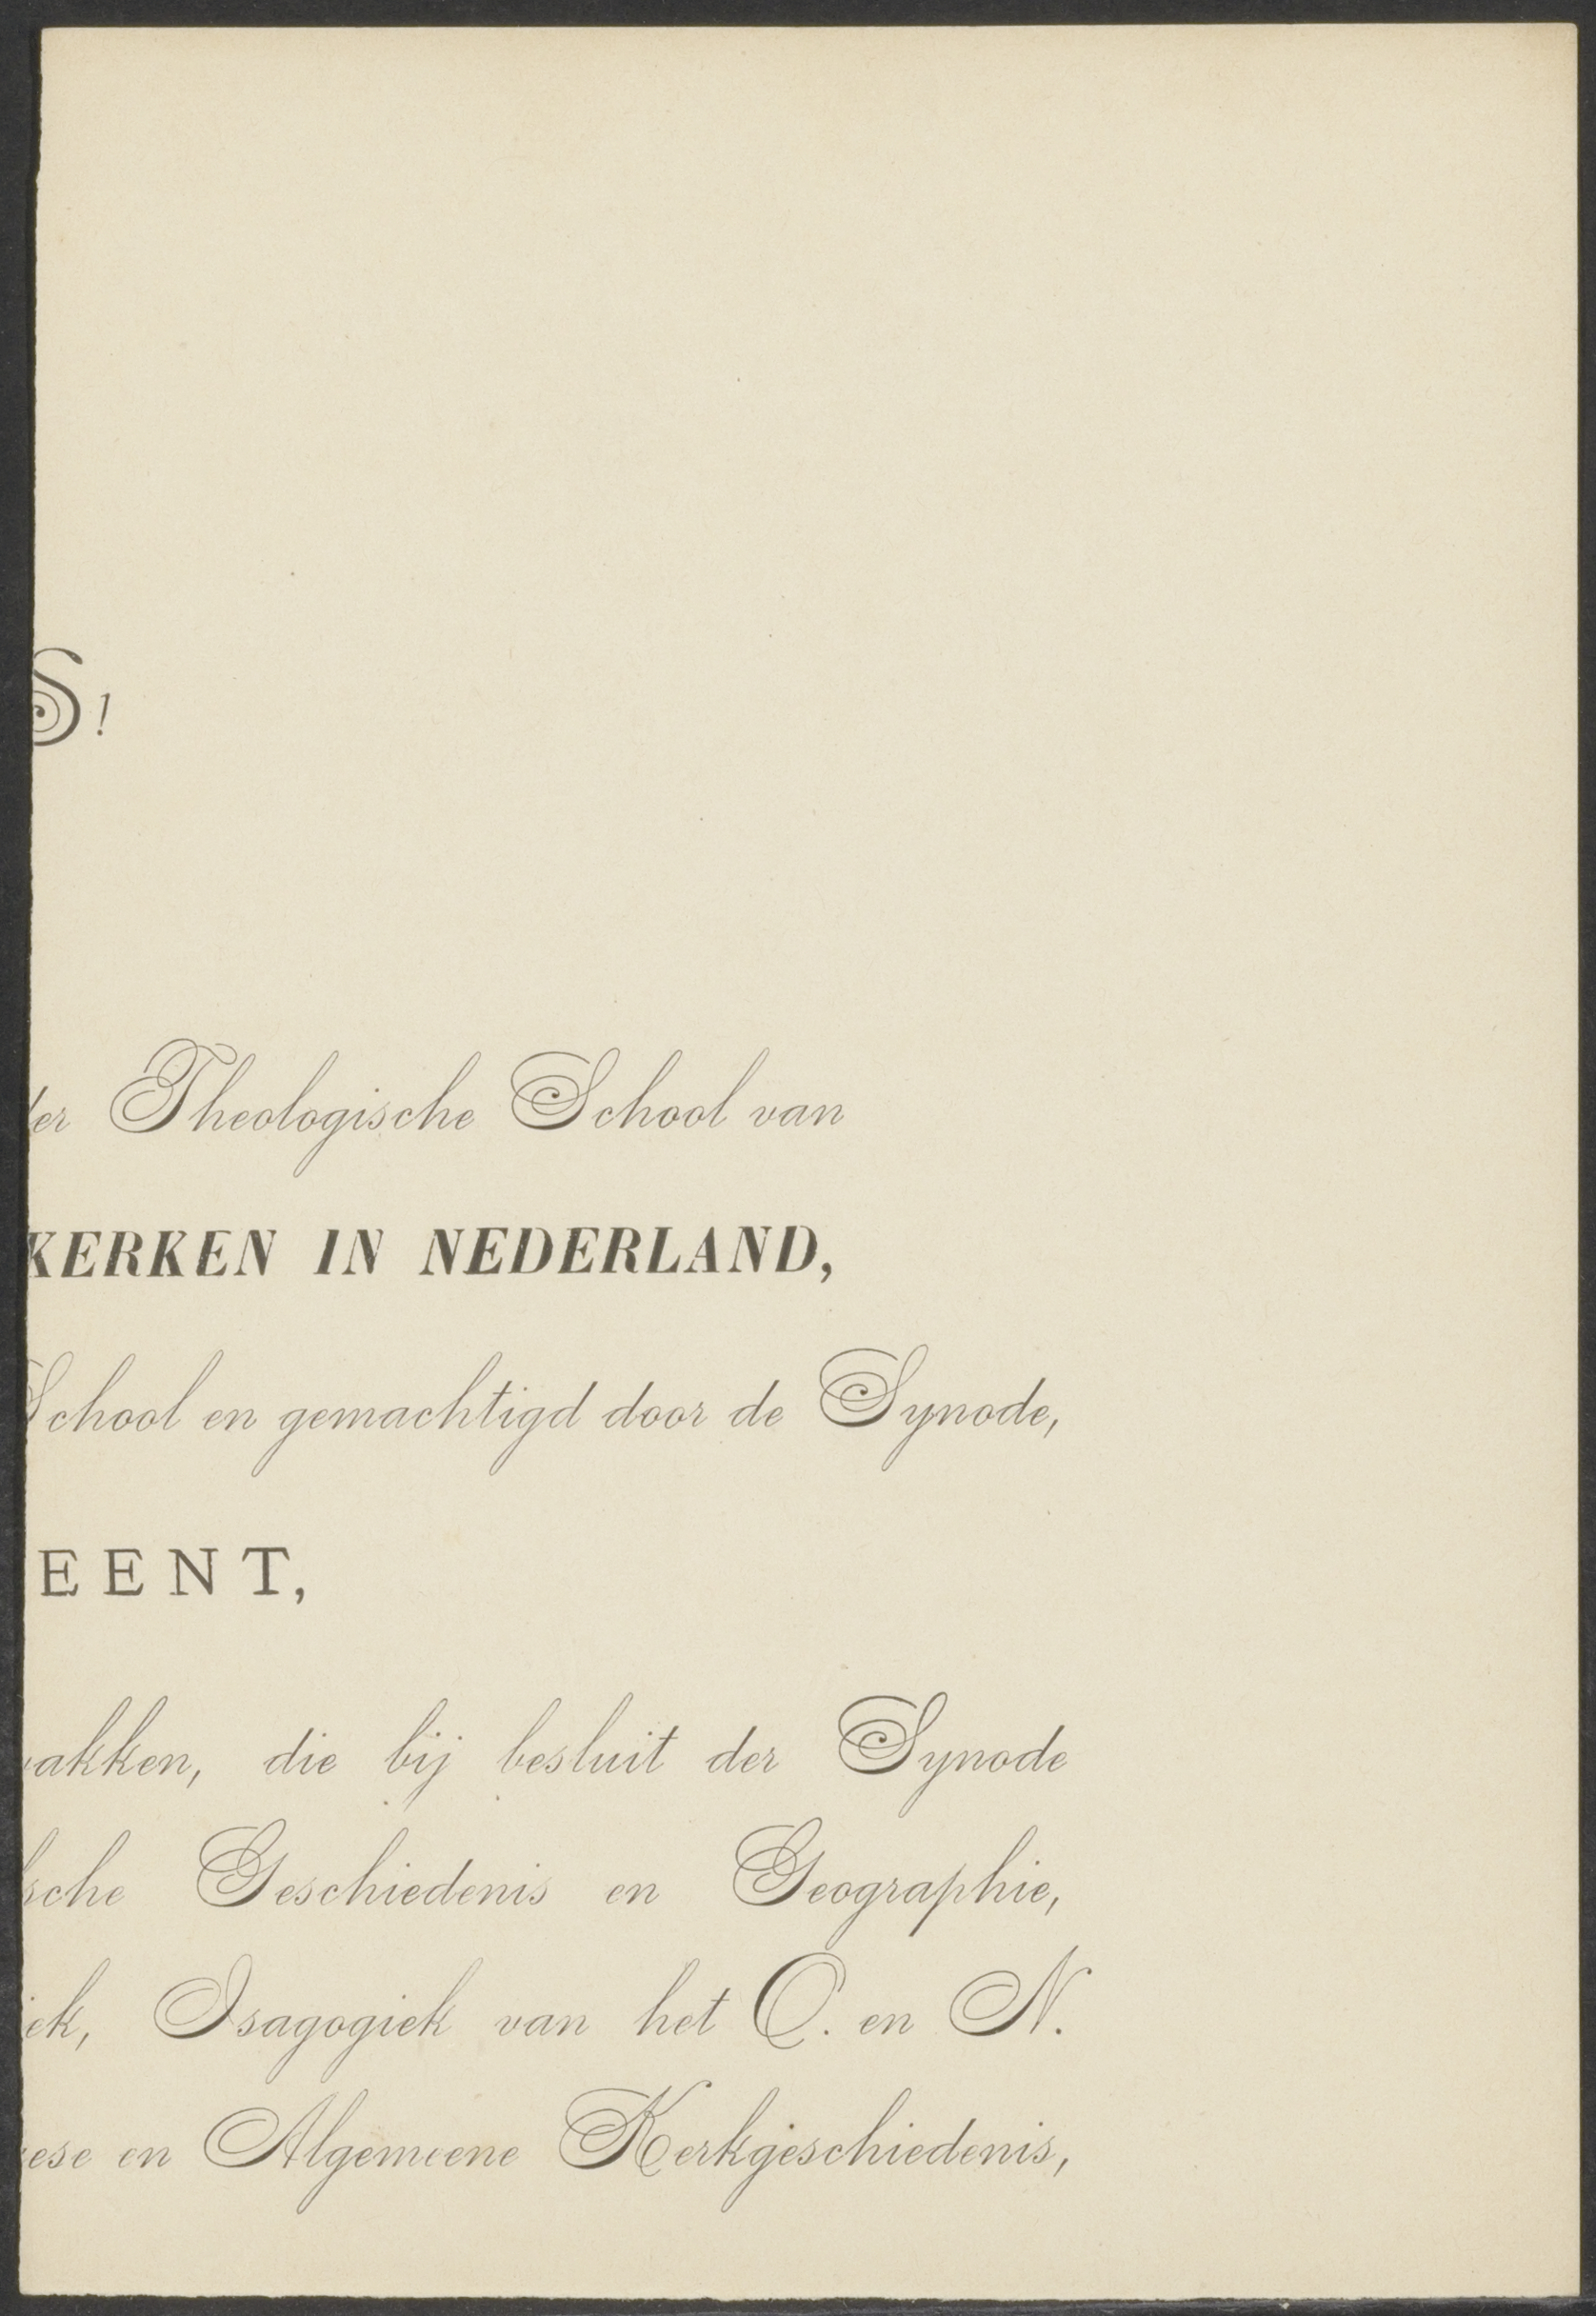 S!
der Theologische School van
KERKEN IN NEDERLAND,
School en gemachtigd door de Synode,
EENT,
akken, die bij besluit der Synode
sche Geschiedenis en Geographie,
iek, Isagogiek van het O. en N.
ese en Algemeene Kerkgeschiedenis,